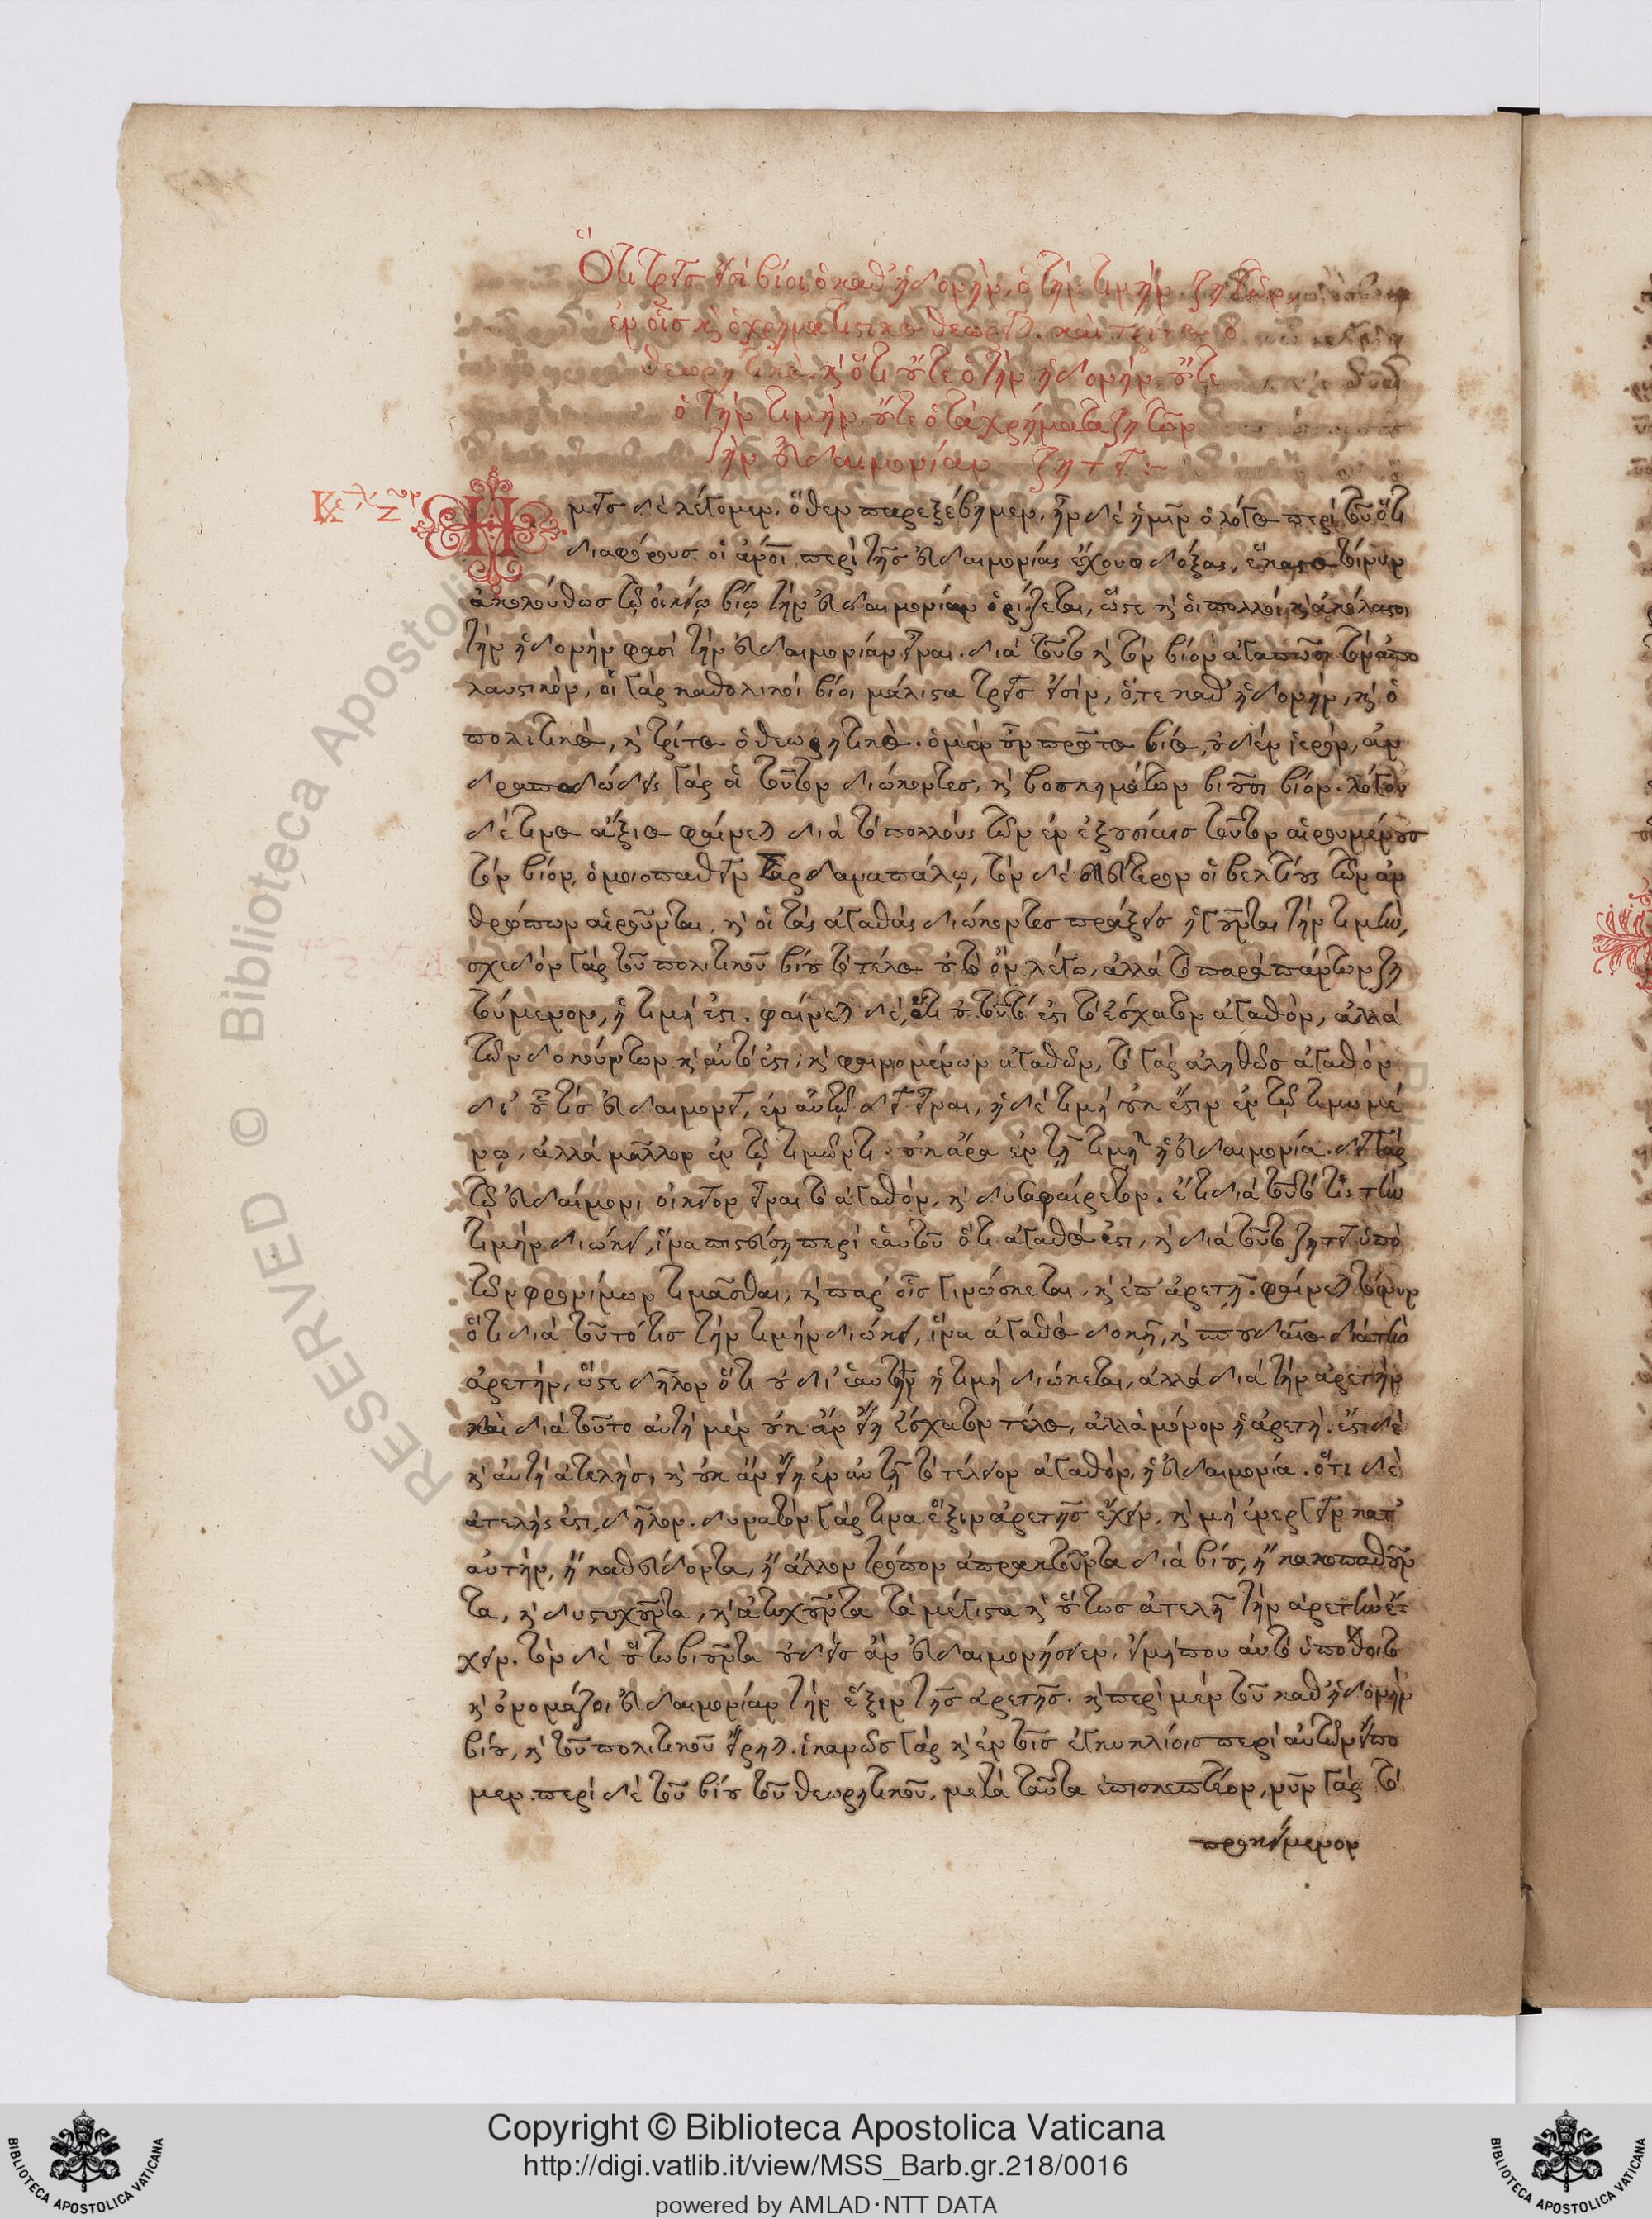 Ὅτι τρεῖς εἰσὶ βίοι, ὁ καθ' ἡδονὴν, ὁ τὴν τιμὴν ζητῶν,
ἐν οἷς κὶ ὁ χρηματιστικὸς θεωρεῖται. καὶ τρίτος ὁ
θεωρητικὸς. κὶ ὅτι οὔτε ὁ τὴν ἡδονὴν, οὔτε
ὁ τὴν τιμὴν, οὔτε ὁ τὰ χρήματα ζητῶν
τὴν εὐδαιμονίαν ζητεῖ :-
Ἡμεῖς δὲ λέγομεν, ὅθεν παρεξέβημεν, ἦν δὲ ἡμῖν ὁ λόγος περὶ τοῦ ὅτι
διαφόρους οἱ ἄνοι περὶ τῆς εὐδαιμονίας ἔχουσι δόξας, ἕκαστος τοίνυν
ἀκολούθως τῷ οἰκείῳ βίῳ τὴν εὐδαιμονίαν ὁρίζεται, ὥστε κὶ οἱ πολλοὶ, κὶ ἀκόλαστοι
τὴν ἡδονὴν φασὶ τὴν εὐδαιμονίαν εἶναι. διὰ τοῦτο κὶ τὸν βίον ἀγαπῶσι τὸν ἀπο
λαυστικὸν, οἱ γὰρ καθολικοὶ βίοι μάλιστα τρεῖς εἰσὶν, ὅ,τε καθ' ἡδονὴν, κὶ ὁ
πολιτικὸς, κὶ τρίτος ὁ θεωρητικὸς. ὁ μὲν οὖν πρῶτος βίος, οὐδὲν ἱερὸν, ἀν
δραποδώδεις γὰρ οἱ τοῦτον διώκοντες, κὶ βοσκημάτων βιοῦσι βίον. λόγου
δέ τινος ἄξιος φαίνεται διὰ τὸ πολλοὺς τῶν ἐν ἐξουσίαις τοῦτον αἱρουμένους
τὸν βίον, ὁμοιοπαθεῖν Σαρδαναπάλῳ, τὸν δὲ δεύτερον οἱ βελτίους τῶν ἀν
θρώπων αἱροῦνται, κὶ οἱ τὰς ἀγαθὰς διώκοντες πράξεις ἡγοῦνται τὴν τιμὴν,
σχεδὸν γὰρ τοῦ πολιτικοῦ βίου τὸ τέλος οὐ τὸ ὂν λέγω, ἀλλὰ τὸ παρὰ πάντων ζη
τούμενον, ἡ τιμή ἐστι. φαίνεται δὲ, ὅτι οὐ τοῦτό ἐστι τὸ ἔσχατον ἀγαθὸν, ἀλλὰ
τῶν δοκούντων κὶ αὐτό ἐστι, κὶ φαινομένων ἀγαθῶν, τὸ γὰρ ἀληθῶς ἀγαθὸν
δι' οὗ τις εὐδαιμονεῖ, ἐν αὐτῷ δεῖ εἶναι, ἡ δὲ τιμὴ οὐκ ἔστιν ἐν τῷ τιμωμέ
νῳ, ἀλλὰ μᾶλλον ἐν τῷ τιμῶντι. οὐκ ἄρα ἐν τῇ τιμῇ ἡ εὐδαιμονία. δεῖ γὰρ
τῷ εὐδαίμονι οἰκεῖον εἶναι τὸ ἀγαθὸν, κὶ δυσαφαίρετον. ἔτι διὰ τοῦτό τις τὴν
τιμὴν διώκει, ἵνα πιστεύσῃ περὶ ἑαυτοῦ ὅτι ἀγαθός ἐστι, κὶ διὰ τοῦτο ζητεῖ ὑπὸ
τῶν φρονίμων τιμᾶσθαι, κὶ παρ' οἷς γινώσκεται, κὶ ἐπ' ἀρετῇ. φαίνεται τοίνυν
ὅτι διὰ τοῦτό τις τὴν τιμὴν διώκει, ἵνα ἀγαθὸς δοκῇ, κὶ σπουδαῖος διὰ τὴν
ἀρετὴν, ὥστε δῆλον ὅτι οὐ δι' ἑαυτὴν ἡ τιμὴ διώκεται, ἀλλὰ διὰ τὴν ἀρετὴν
καὶ διὰ τοῦτο αὐτὴ μὲν οὐκ ἂν εἴη ἔσχατον τέλος, ἀλλὰ μόνον ἡ ἀρετὴ. ἔστι δὲ
κὶ αὐτὴ ἀτελὴς, κὶ οὐκ ἂν εἴη ἐν αὐτῇ τὸ τέλειον ἀγαθὸν, ἡ εὐδαιμονία. ὅτι δὲ
ἀτελής ἐστι, δῆλον. δυνατὸν γάρ τινα ἕξιν ἀρετῆς ἔχειν, κὶ μὴ ἐνεργεῖν κατ'
αὐτὴν, ἢ καθεύδοντα, ἢ ἄλλον τρόπον ἀπρακτοῦντα διὰ βίου, ἢ κακοπαθοῦν
τα, κὶ δυστυχοῦντα, κὶ ἀτυχοῦντα τὰ μέγιστα κὶ οὕτως ἀτελῆ τὴν ἀρετὴν ἔ-
χειν. τὸν δὲ οὕτω βιοῦντα οὐδεὶς ἂν εὐδαιμονήσειεν, εἰ μή που αὐτὸ ὑποθοῖτο
κὶ ὀνομάζοι εὐδαιμονίαν τὴν ἕξιν τῆς ἀρετῆς. κὶ περὶ μὲν τοῦ καθ' ἡδονὴν
βίου, κὶ τοῦ πολιτικοῦ εἴρηται. ἱκανῶς γὰρ κὶ ἐν τοῖς ἐγκυκλίοις περὶ αὐτῶν εἴπο
μεν. περὶ δὲ τοῦ βίου τοῦ θεωρητικοῦ, μετὰ ταῦτα ἐπισκεπτέον, νῦν γὰρ τὸ
προκείμενον
RESERVED © Biblioteca Apostoli
Copyright © Biblioteca Apostolica Vaticana
http://digi.vatlib.it/view/MSS_Barb.gr.218/0016
powered by AMLAD·NTT DATA
BIBLIOTECA APOSTOLICA VATICANA
BIBLIOTECA APOSTOLICA VATICANA